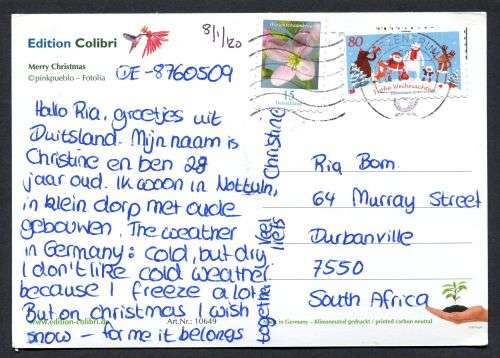 Edition Colibri
Merry Christmas
©pinkpueblo – Fotolia
8/1/20
DE-8760509
Hallo Ria, groetjes uit
Duitsland. Mijn naam is
Christine en ben 28
jaar oud. Ik woon in Nottuln,
in klein dorp met oude
gebouwen. The weather
in Germany: cold, but dry
I don't like cold weather
because I freeze a lot.
But on christmas I wish
snow – for me it belongs
together
Veel liefs
Christine
15
Deutschland
80
Frohe Weihnachten
Ria Bom.
64 Murray Street
Durbanville
7550
South Africa
www.edition-colibri.de
Art.Nr.: 10649
in Germany – Klimaneutral gedruckt / printed carbon neutral